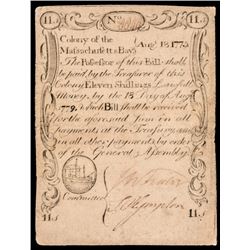 11s. No 11s.
Colony of the Augt 18. 1775
Massachusetts Bay
The Possessor of this Bill shall
be paid, by the Treasurer of this
Colony Eleven Shillings Lawfull
Money, by the 18 Day of Augt
1779. which Bill shall be received
for the aforesaid Sum in all
payments at the Treasury, and
in all other payments by order
of the General Assembly.
Committee
11s. 11s.